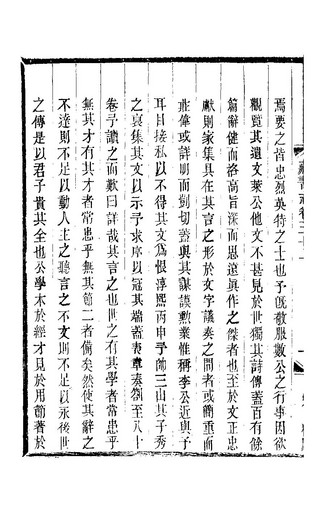 焉要之皆忠烈英特之士也予旣敬服數公之行事因欲
觀覽其遺文萊公他文不甚見於世獨其詩傳蓋百有餘
篇辭健而格高旨深而思遠眞作之傑者也至於文正忠
獻則家集具在其言之形於文字議奏之間者或簡重而
莊偉或詳明而剴切蓋與其謀謨勲業惟稱李公近與予
耳目接私以不得其文爲恨淳熙丙申予帥三山其子秀
之裒集其文以示予求序以冠其端蓋表章奏劄至八十
卷予讀之而歎曰詳哉其言之也世之有其學者常患乎
無其才有其才者常患乎無其節二者備矣然使其辭之
不達則不足以動人主之聽言之不文則不足以永後世
之傳是以君子貴其全也公學本於經才見於用節著於
藏書志卷三十一